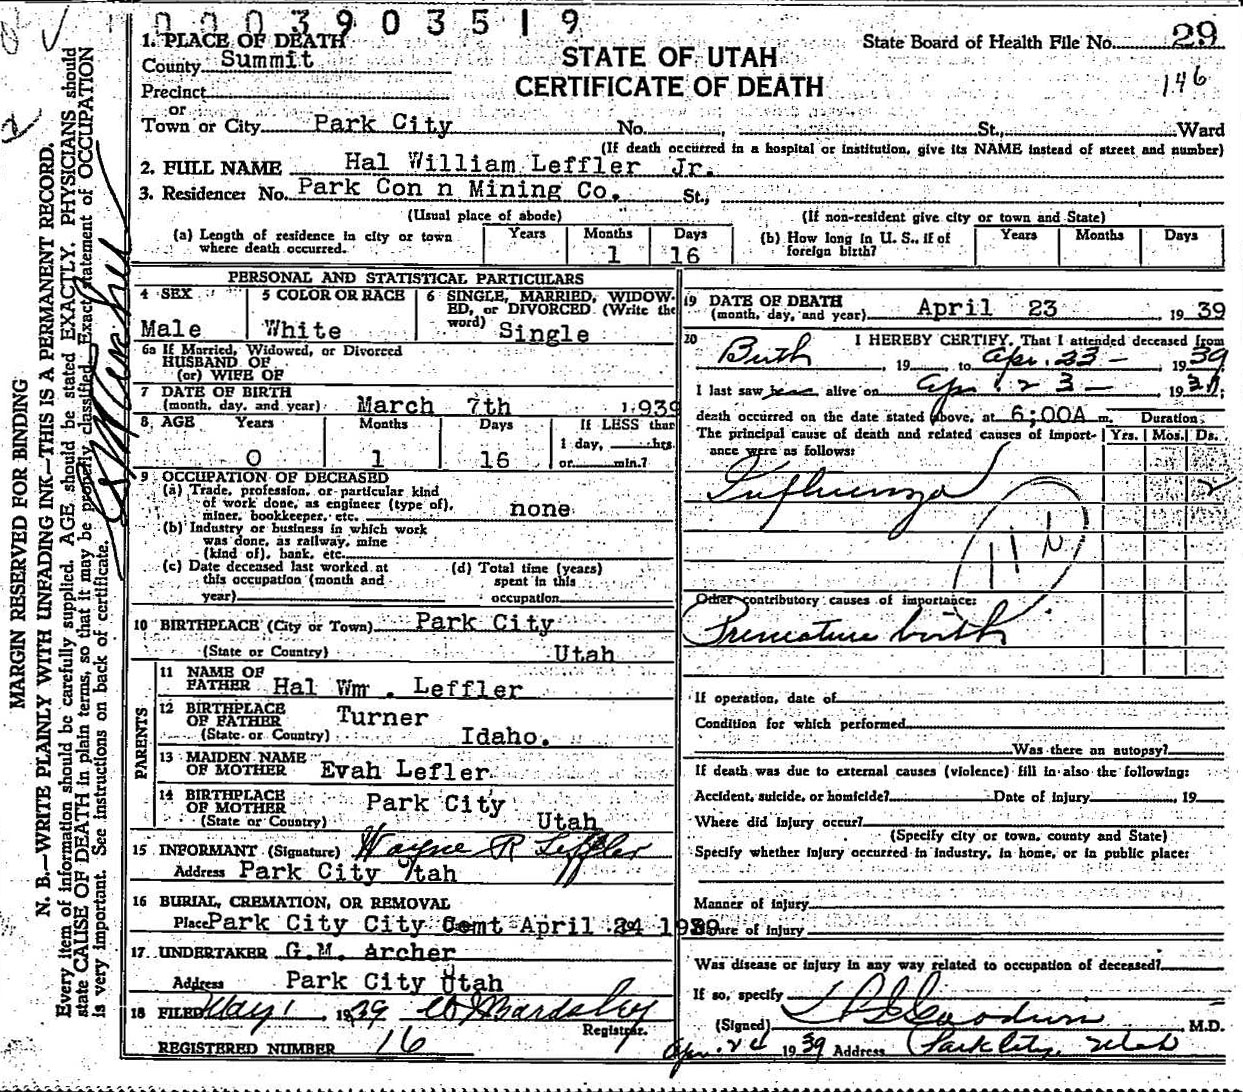 0003903519
1. PLACE OF DEATH
County Summit
STATE OF UTAH
CERTIFICATE OF DEATH
State Board of Health File No. 29
146
Precinct
or
Town or City Park City No. , St., Ward
(If death occurred in a hospital or institution, give its NAME instead of street and number)
2. FULL NAME Hal William Leffler Jr.
3. Residence: No. Park Con n Mining Co. St.,
(Usual place of abode) (If non-resident give city or town and State)
(a) Length of residence in city or town where death occurred. Years Months 1 Days 16
(b) How long in U. S., if of foreign birth? Years Months Days
PERSONAL AND STATISTICAL PARTICULARS
4 SEX Male
5 COLOR OR RACE White
6 SINGLE, MARRIED, WIDOWED, OR DIVORCED (Write the word) Single
6a If Married, Widowed, or Divorced
HUSBAND OF
(or) WIFE OF
7 DATE OF BIRTH
(month, day, and year) March 7th 1939
8 AGE Years 0 Months 1 Days 16 If LESS than
1 day, hrs.
or min.?
9 OCCUPATION OF DECEASED
(a) Trade, profession, or particular kind
of work done, as engineer (type of),
miner, bookkeeper, etc. none
(b) Industry or business in which work
was done, as railway, mine
(kind of), bank, etc.
(c) Date deceased last worked at
this occupation (month and
year)
(d) Total time (years)
spent in this
occupation
10 BIRTHPLACE (City or Town) Park City
(State or Country) Utah
PARENTS
11 NAME OF
FATHER Hal Wm . Leffler
12 BIRTHPLACE
OF FATHER Turner
(State or Country) Idaho.
13 MAIDEN NAME
OF MOTHER Evah Lefler
14 BIRTHPLACE
OF MOTHER Park City
(State or Country) Utah
15 INFORMANT (Signature) Wayne R Leffler
Address Park City Utah
16 BURIAL, CREMATION, OR REMOVAL
Place Park City City Cemt April 24 1939
17 UNDERTAKER G.M. Archer
Address Park City Utah
18 FILED May 1, 1939
Registrar.
REGISTERED NUMBER 16
19 DATE OF DEATH
(month, day, and year) April 23 1939
20 I HEREBY CERTIFY, That I attended deceased from
Birth 19 , to Apr. 23 - 1939
I last saw alive on Apr. 23 - 1939;
death occurred on the date stated above, at 6;00A m. Duration
The principal cause of death and related causes of importance were as follows: Yrs. Mos. Ds.
Influenza 2
11 b
Other contributory causes of importance:
Premature birth
If operation, date of
Condition for which performed
Was there an autopsy?
If death was due to external causes (violence) fill in also the following:
Accident, suicide, or homicide? Date of injury , 19
Where did injury occur?
(Specify city or town, county and State)
Specify whether injury occurred in industry, in home, or in public place:
Manner of injury
Nature of injury
Was disease or injury in any way related to occupation of deceased?
If so, specify
(Signed) M.D.
Apr. 24 1939 Address Park City, Utah
MARGIN RESERVED FOR BINDING
N. B.—WRITE PLAINLY WITH UNFADING INK—THIS IS A PERMANENT RECORD.
Every item of information should be carefully supplied. AGE should be stated EXACTLY. PHYSICIANS should
state CAUSE OF DEATH in plain terms, so that it may be properly classified. Exact statement of OCCUPATION
is very important. See instructions on back of certificate.